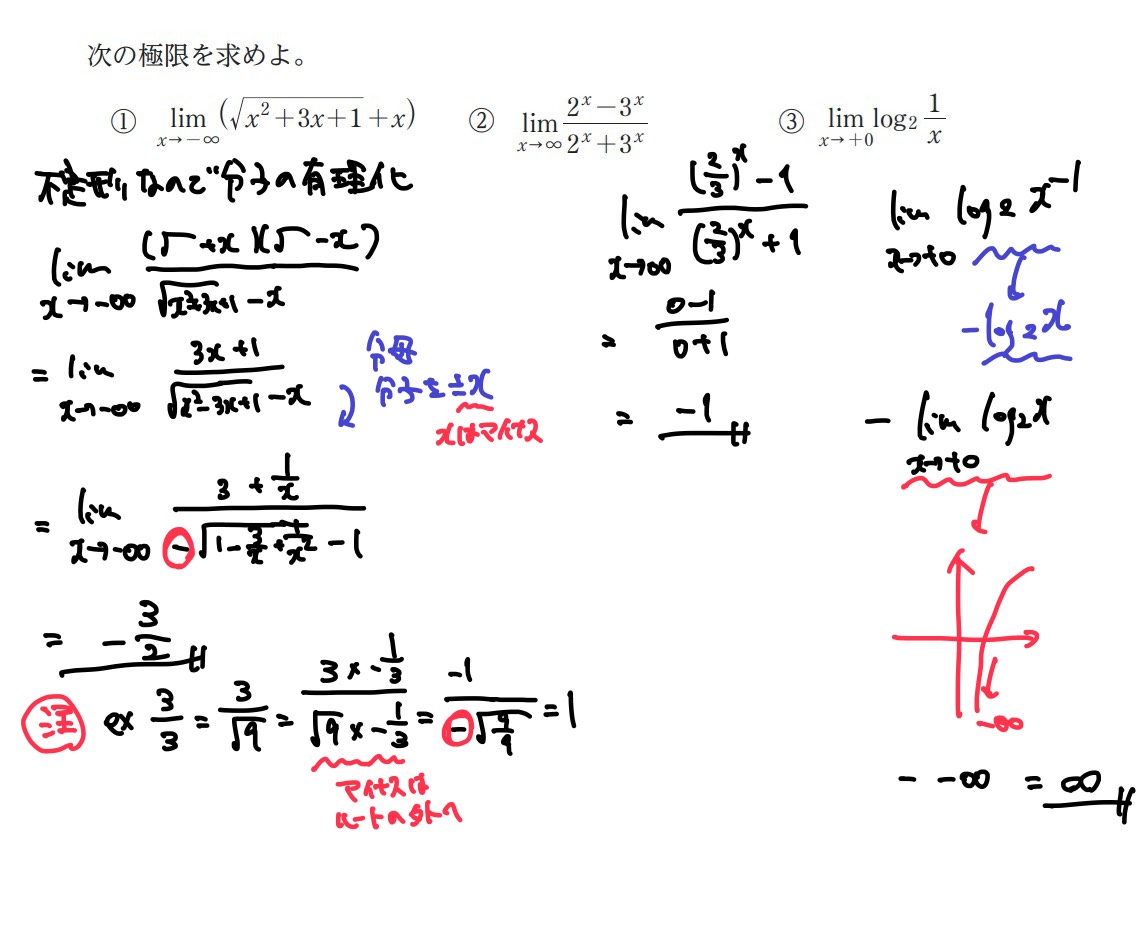 次の極限を求めよ。
① lim x→−∞ (√(x²+3x+1)+x)
② lim x→∞ (2ˣ−3ˣ)/(2ˣ+3ˣ)
③ lim x→+0 log₂ 1/x
不定形なので分子の有理化
lim x→−∞ (√ +x)(√ −x)/(√(x²+3x+1)−x)
= lim x→−∞ (3x+1)/(√(x²−3x+1)−x)
分母
分子を÷x
xはマイナス
= lim x→−∞ (3+1/x)/(−√(1−3/x+1/x²)−1)
= −3/2
注 ex 3/3 = 3/√9 = (3×−1/3)/(√9×−1/3) = −1/(−√(9/9)) = 1
マイナスは
ルートの外へ
lim x→∞ ((2/3)ˣ−1)/((2/3)ˣ+1)
= (0−1)/(0+1)
= −1
lim x→+0 log₂ x⁻¹
−log₂ x
− lim x→+0 log₂ x
−∞
− −∞ = ∞